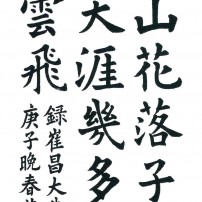 山花落子
天涯幾多
雲飛
録崔昌大
庚子晚春